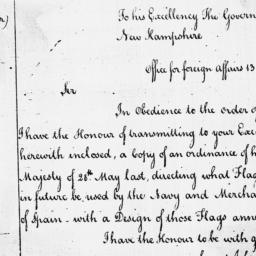 r)
To his Excellency The Govern
New Hampshire
Office for foreign Affairs 13
Sir
In Obedience to the order of
I have the Honour of transmitting to your Exce
herewith inclosed, a Copy of an ordinance of h
Majesty of 28th May last, directing what Flag
in future be used by the Navy and Mercha
of Spain - with a Design of those Flags anne
I have the Honour to be with g